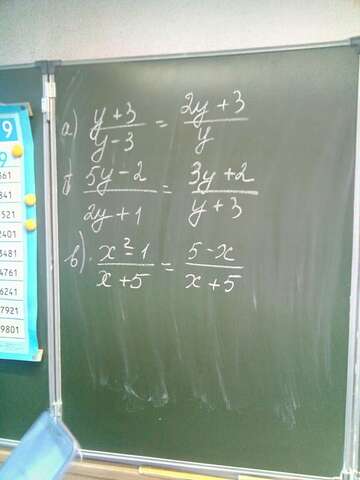 а) y+3/y-3 = 2y+3/y
б) 5y-2/2y+1 = 3y+2/y+3
в) x²-1/x+5 = 5-x/x+5
9
9
361
841
521
2401
3481
4761
6241
7921
9801